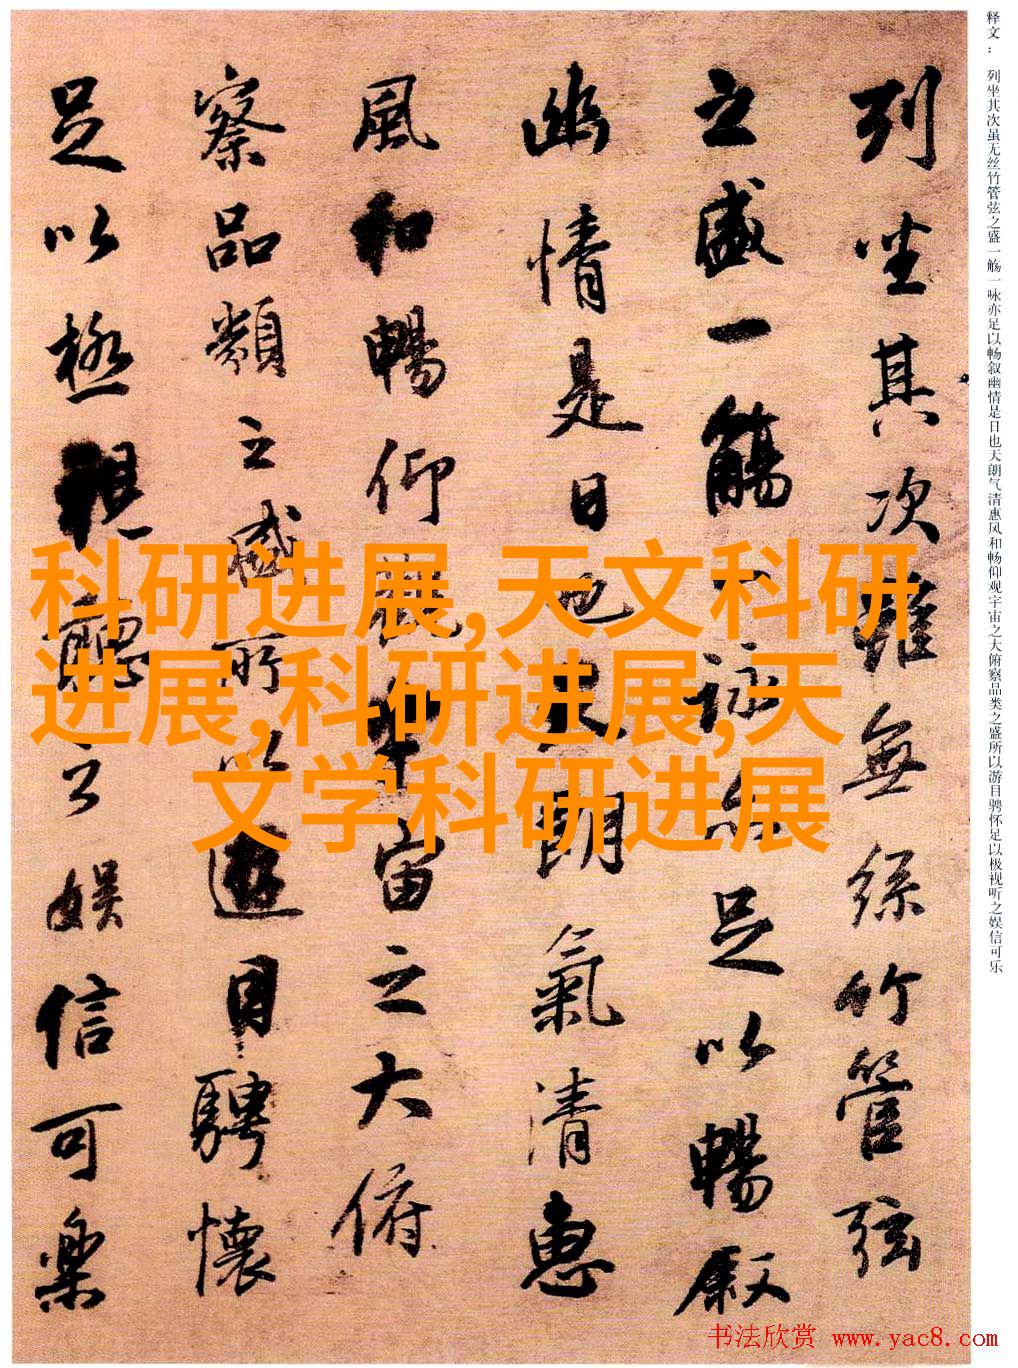 释文：列坐其次虽无丝竹管弦之盛一觞一咏亦足以畅叙幽情是日也天朗气清惠风和畅仰观宇宙之大俯察品类之盛所以游目骋怀足以极视听之娱信可乐
列坐其次雖無絲竹管弦
之盛一觴一詠亦足以暢叙
幽情是日也天朗氣清惠
風和暢仰觀宇宙之大俯
察品類之盛所以遊目騁懷
足以極視聽之娛信可樂
科研进展,天文科研
进展,科研进展,天
文学科研进展
书法欣赏 www.yac8.com